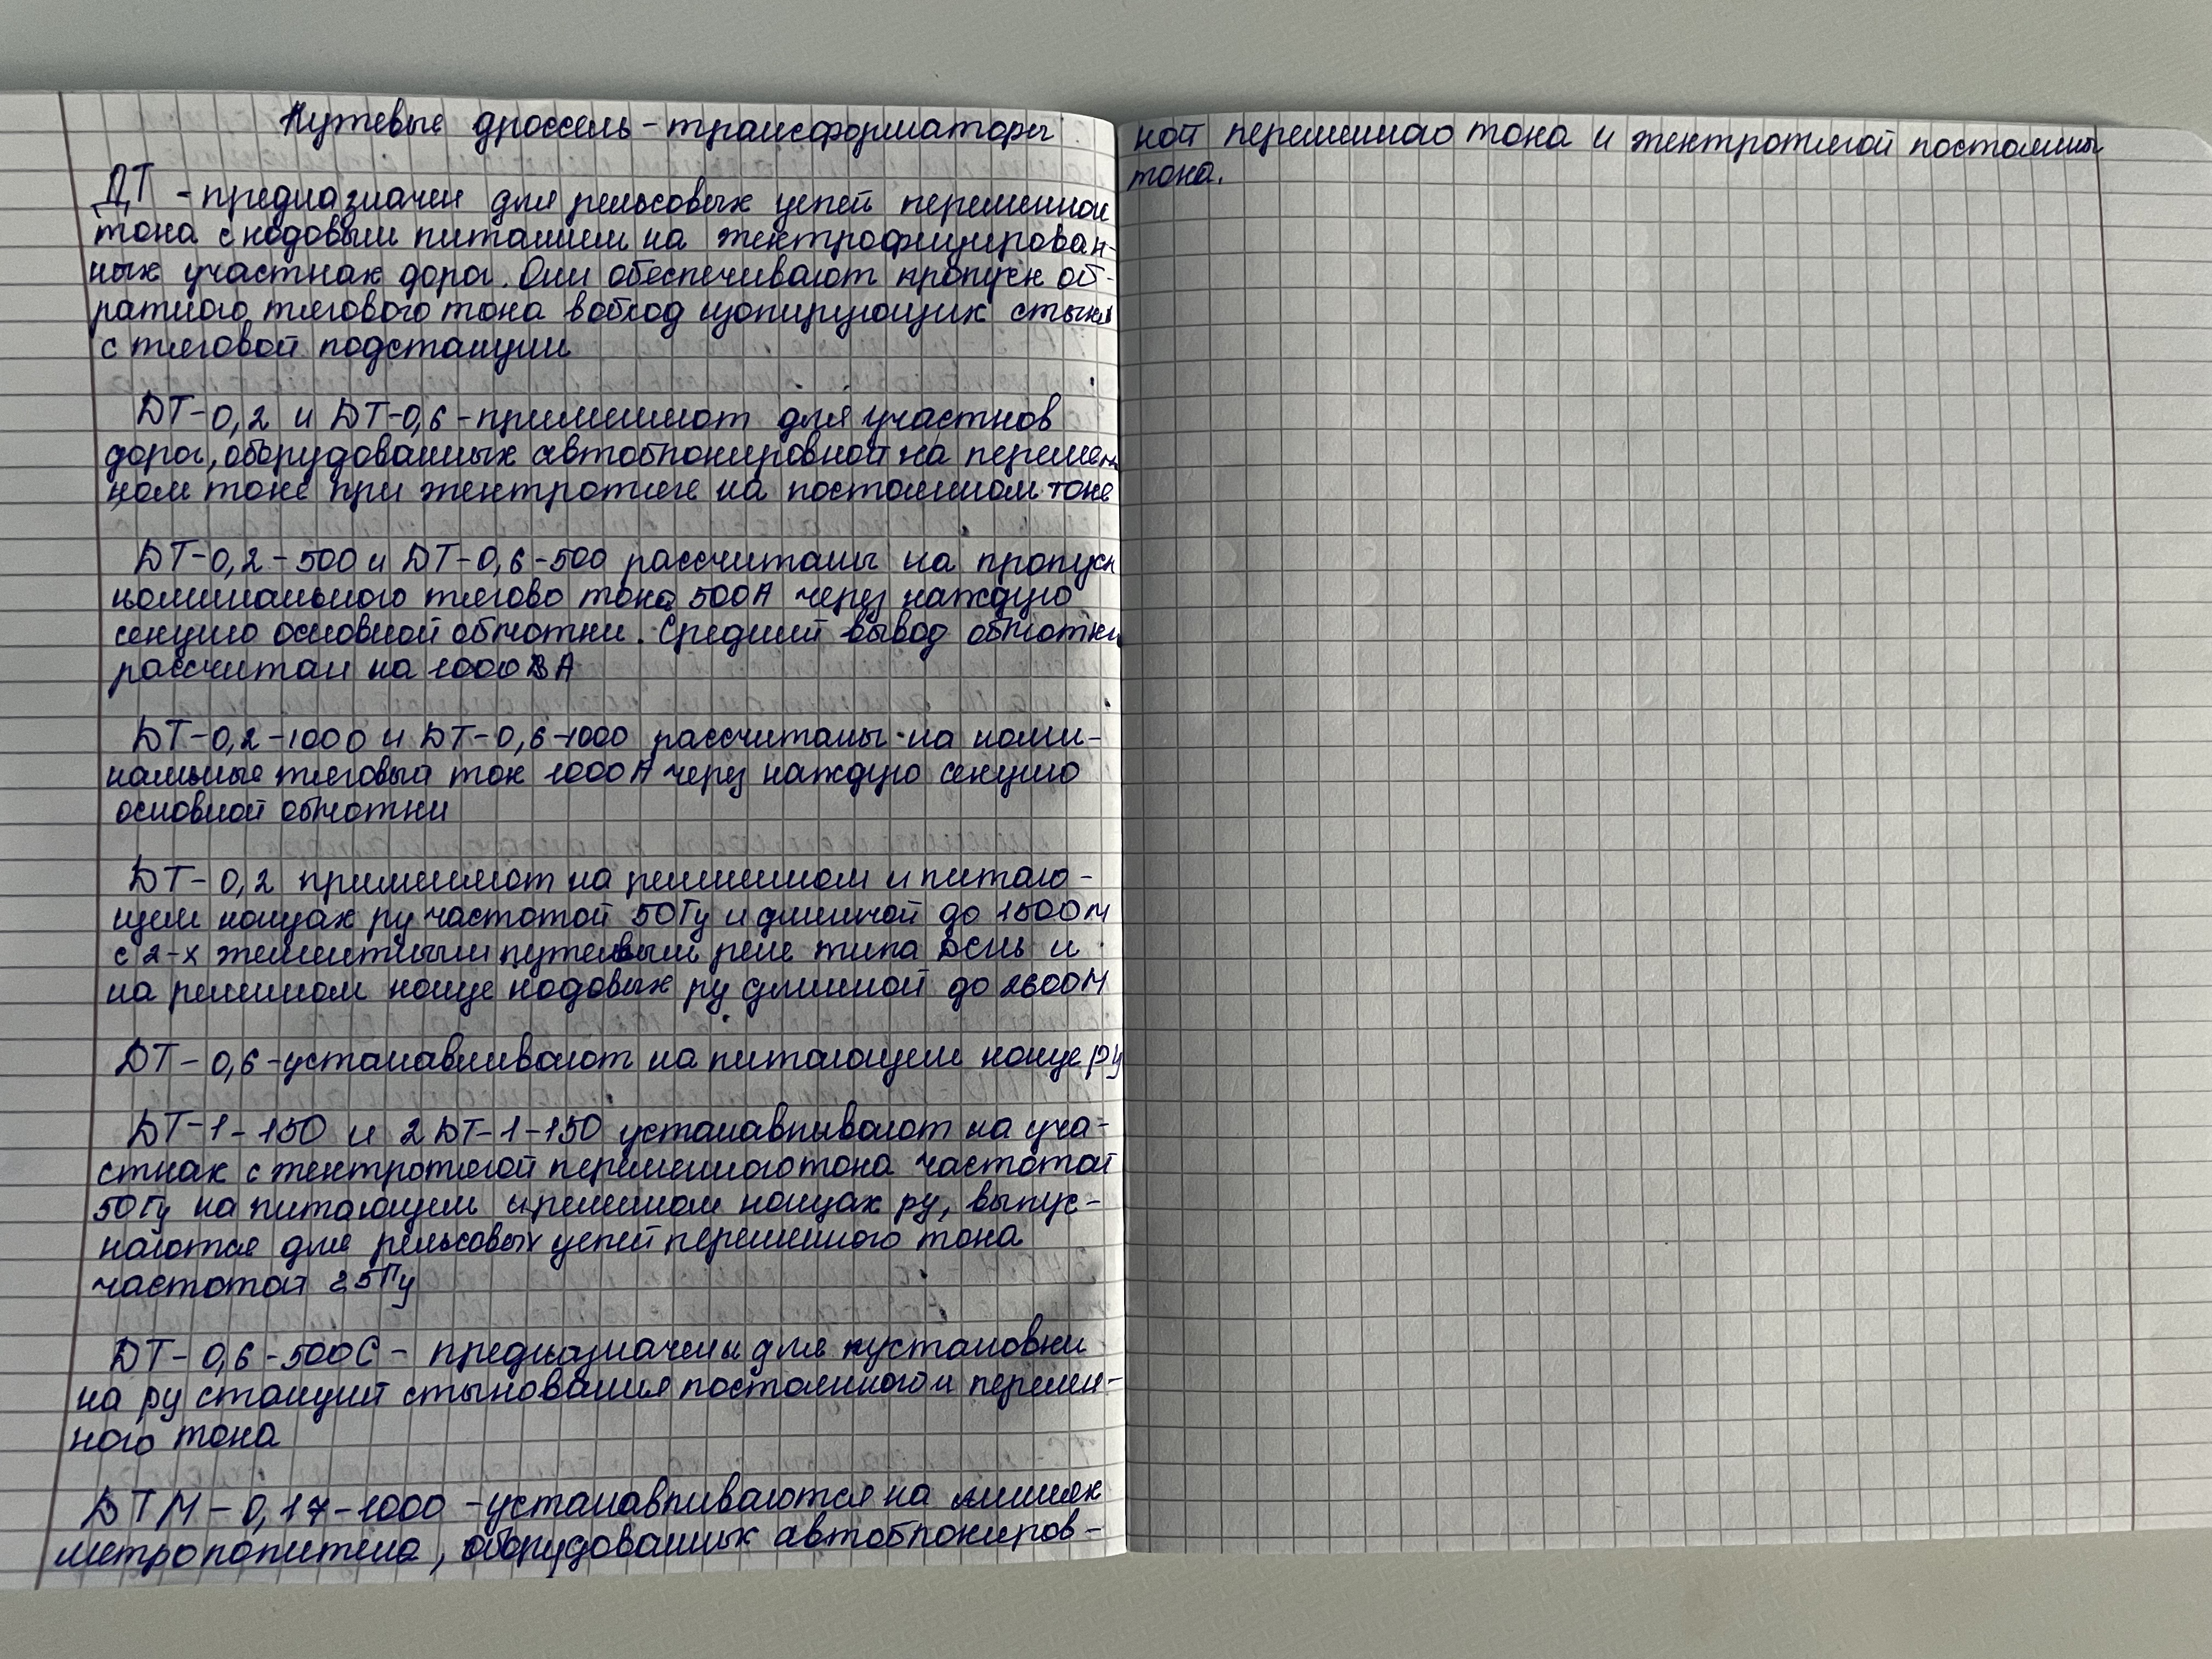 Путевые дроссель-трансформаторы
ДТ - предназначен для рельсовых цепей переменном
тока с кодовым питанием на электрофицирован-
ных участках дорог. Они обеспечивают пропуск об-
ратного тягового тока вобход изолирующих стыков
с тяговой подстанции
ДТ-0,2 и ДТ-0,6 - применяют для участков
дорог, оборудованных автоблокировкой на перемен
ном токе при электротяге на постоянном токе
ДТ-0,2-500 и ДТ-0,6-500 рассчитаны на пропуск
номинального тягово тока 500А через каждую
секцию основной обмотки. Средний вывод обмотки
рассчитан на 1000 А
ДТ-0,2-1000 и ДТ-0,6-1000 рассчитаны на номи-
нальные тяговый ток 1000А через каждую секцию
основной обмотки
ДТ-0,2 применяют на релейном и питаю-
щем концах рц частотой 50Гц и длинной до 1500м
с 2-х элементным путевым реле типа ДСШ и
на релейном конце кодовых рц длинной до 2600м
ДТ-0,6-устанавливают на питающем конце рц
ДТ-1-150 и 2ДТ-1-150 устанавливают на уча-
стках с электротягой переменного тока частотой
50Гц на питающем и релейном концах рц, выпус-
каются для рельсовых цепей переменного тока
частотой 25Гц
ДТ-0,6-500С - предназначены для установки
на рц станций стыкования постоянного и перемен-
ного тока
ДТМ-0,17-1000 -устанавливаются на линиях
метрополитена, оборудованных автоблокиров-
кой переменного тока и электротягой постоянны
тока.